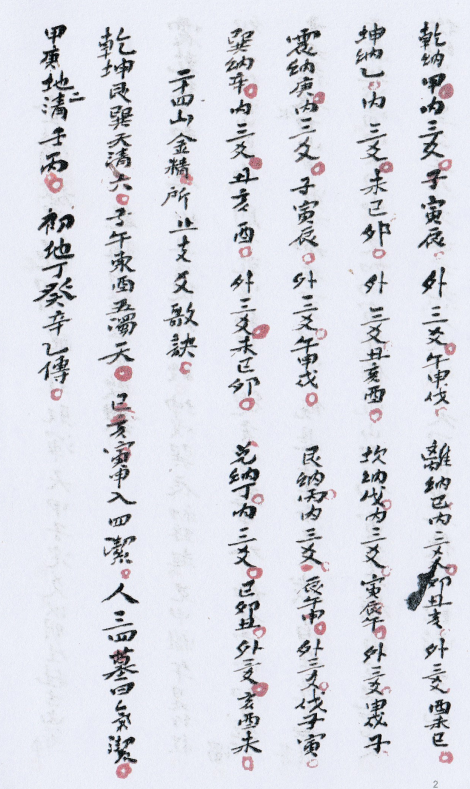 乾納甲內三爻子寅辰 外三爻午申戌 離納己內三爻卯丑亥 外三爻酉未巳
坤納乙內三爻未巳卯 外三爻丑亥酉 坎納戊內三爻寅辰午 外三爻申戌子
震納庚內三爻子寅辰 外三爻午申戌 艮納丙內三爻辰午申 外三爻戌子寅
巽納辛內三爻丑亥酉 外三爻未巳卯 兌納丁內三爻巳卯丑 外三爻亥酉未
二十四山金精所止支爻歌訣
乾坤艮巽天清六 子午東酉五濁天 巳亥寅申入四潔 人三四墓四氣潔
甲庚地二清壬丙 初地丁癸辛乙傳
2